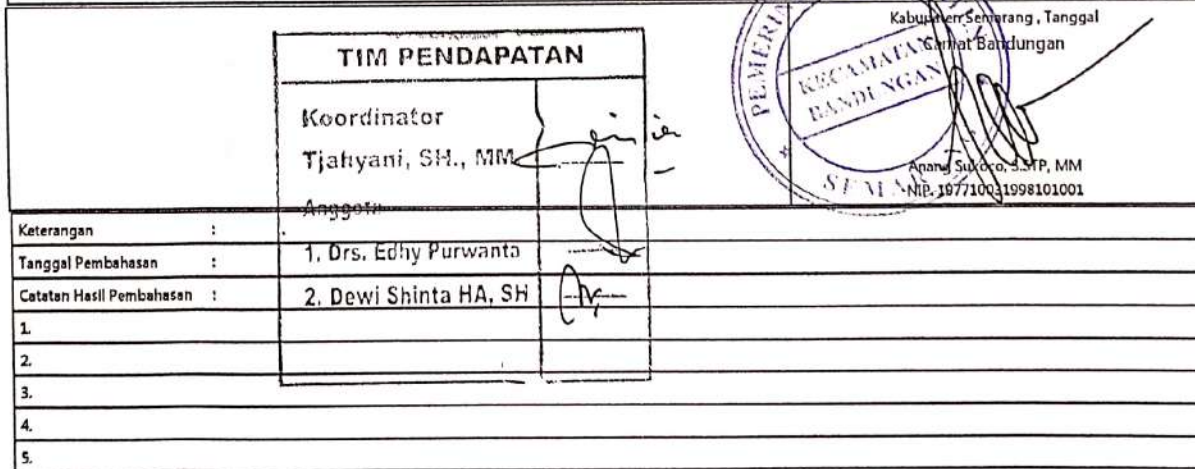 Kabupaten Semarang , Tanggal
Camat Bandungan
PEMERIN
KECAMATAN
BANDUNGAN
SEMAR
Anang Sukoco, S.STP, MM
NIP. 197710031998101001
TIM PENDAPATAN
Koordinator
Tjahyani, SH., MM
Anggota
1. Drs. Edhy Purwanta
2. Dewi Shinta HA, SH
Keterangan :
Tanggal Pembahasan :
Catatan Hasil Pembahasan :
1.
2.
3.
4.
5.